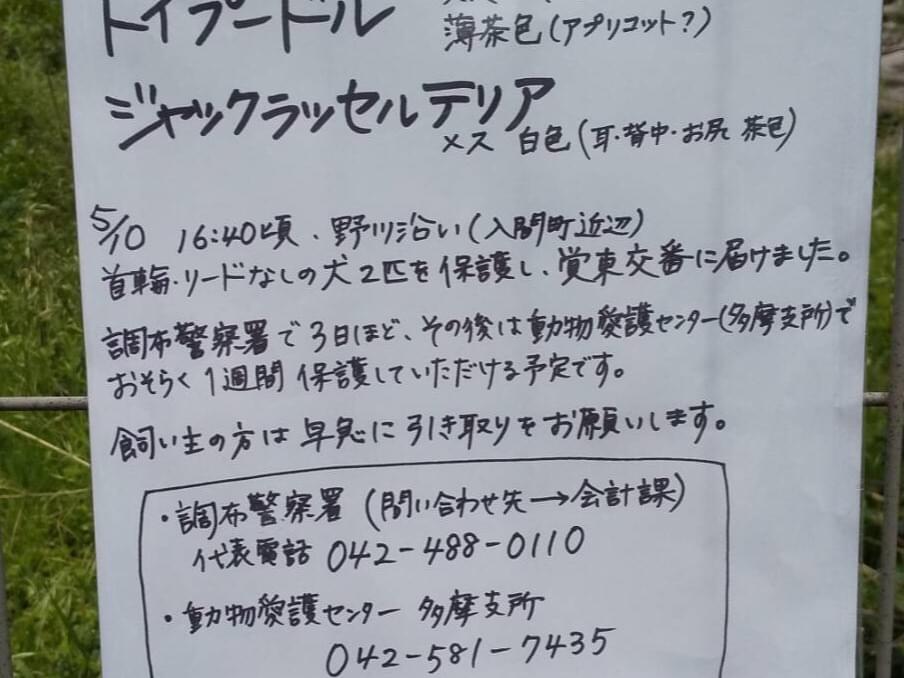 トイプードル
薄茶色(アプリコット?)
ジャックラッセルテリア
メス 白色(耳・背中・お尻 茶色)
5/10 16:40頃、野川沿い(入間町近辺)
首輪・リードなしの犬2匹を保護し、覚東交番に届けました。
調布警察署で3日ほど、その後は動物愛護センター(多摩支所)で
おそらく1週間保護していただける予定です。
飼い主の方は早急に引き取りをお願いします。
・調布警察署(問い合わせ先→会計課)
代表電話 042-488-0110
・動物愛護センター 多摩支所
042-581-7435